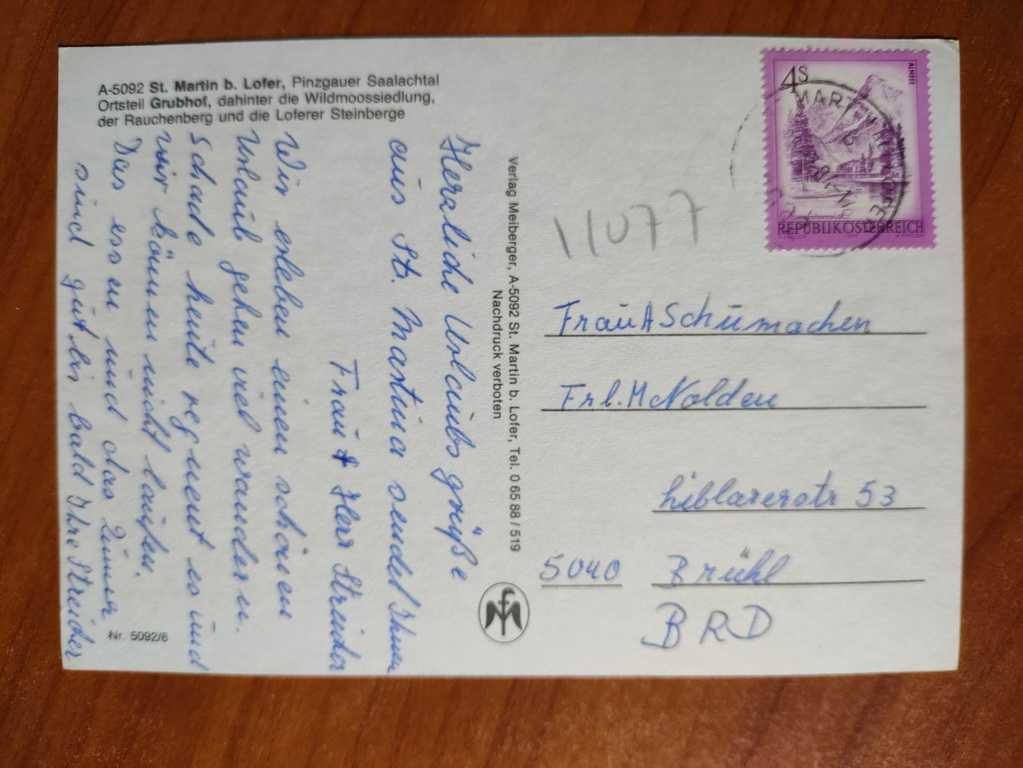 A-5092 St. Martin b. Lofer, Pinzgauer Saalachtal
Ortsteil Grubhof, dahinter die Wildmoossiedlung,
der Rauchenberg und die Loferer Steinberge
Herzliche Urlaubsgrüße
aus St. Martina sendet Ihnen
Frau & Herr Streider
Wir erleben einen schönen
Urlaub gehen viel wandern.
Schade heute regnent es und
wir können nicht laufen.
Das essen und das Zimmer
sind gut bis bald Ihre Streider
Nr. 5092/8
Verlag Meiberger, A-5092 St. Martin b. Lofer, Tel. 0 65 88 / 519
Nachdruck verboten
4S
ALMSEE
REPUBLIK ÖSTERREICH
11077
Frau A Schumacher
Frl. M Nolden
Liblarerstr 53
5040 Brühl
BRD